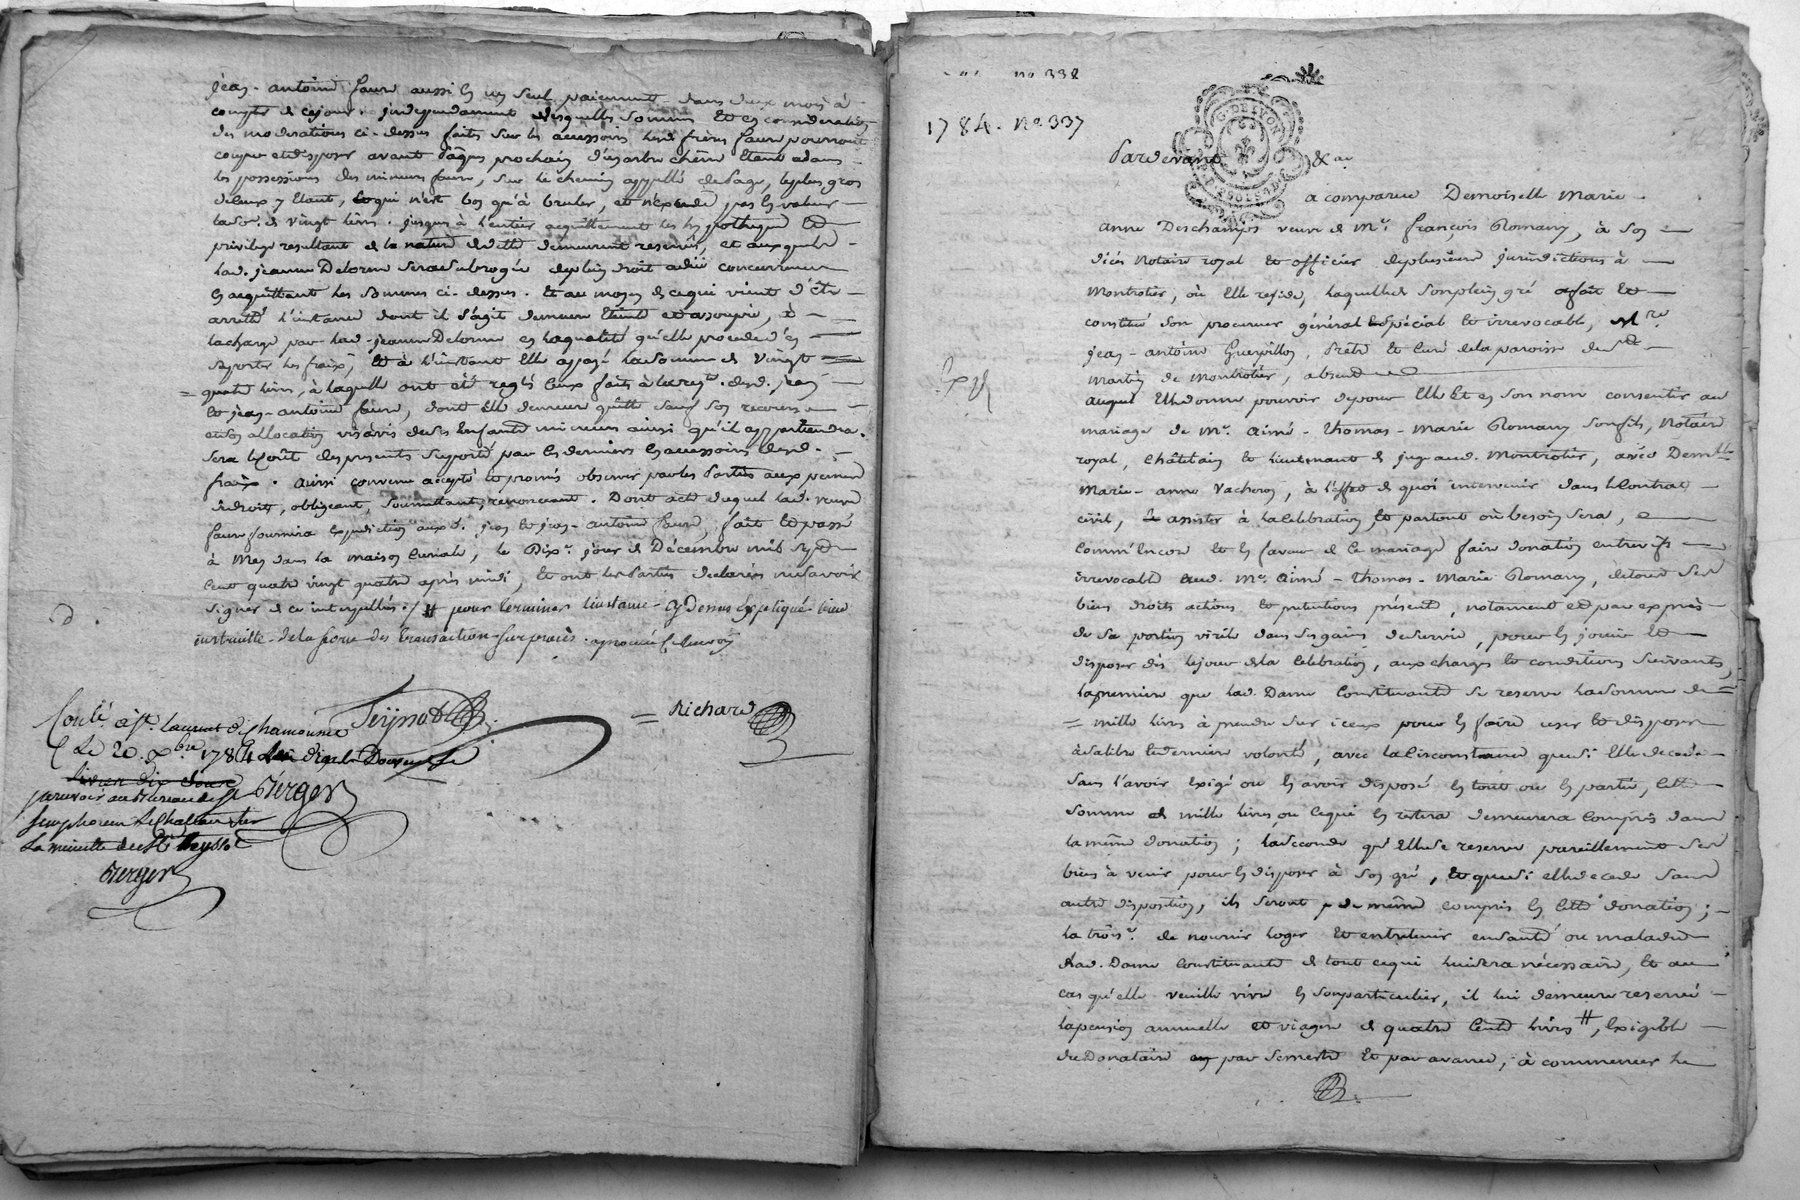 jean-antoine faure aussi en un seul paiement dans deux mois à
compter de ce jour. independamment desquelles sommes et en consideration
des moderations ci-dessus faites sur les accessoirs lesd. freres faure pourront
couper et disposer avant Pâques prochain d'un arbre chêne étant dans
les possessions des mineurs faure, sur le chemin appellé de Page, le plus gros
de ceux y étant, et qui n'est bon qu'à bruler, et n'excede pas la valeur
de vingt livres. jusques à l'entier acquittement les hypotheques et
privilege resultant de la nature demeurent reservés, et auxquels
lad. jeanne Delorme sera subrogée de plein droit
en acquittant les sommes ci-dessus. et au moyen de ce qui vient d'être
arretté l'instance dont il s'agit demeure éteinte et assoupie, à
la charge par lad. jeanne Delorme en la qualité qu'elle procede d'en
suporter les fraix, et à l'instant elle a payé la somme de vingt
quatre livres, à laquelle ont été reglés ceux faits à la reqte. desd. jean
et jean-antoine faure, dont elle demeure quitte sauf son recours
et son allocation vis à vis de ses enfants mineurs ainsi qu'il appartiendra.
sera le coût des presents suporté par les derniers en accessoires desd.
fraix. ainsi convenu accepté et promis observer par les parties aux peines
de droit, obligeant, soumettant, renonceant. Dont acte duquel lad. veuve
faure fournira expedition auxd. jean et jean-antoine faure, fait et passé
à Mey dans la maison curiale, le dixe. jour de Décembre mil sept
cent quatre vingt quatre après midi, et ont les parties declarés ne savoir
signer de ce interpellés. /# pour terminer l'instance cy dessus expliqué bien
instruitte de la force des transaction sur procès. aprouvé
Teyssot
= Richard
Conlé à St. laurent de Chamousset
Le 20. Xbre 1784
Berger
la minutte de Me Teyssot
Berger
no 338
1784. No. 337
G. DE LYON
Pardevant &a
a comparue Demoiselle Marie
anne Deschamps veuve de Me. françois Romany, à son
décès Notaire royal et officier de plusieurs jurisdictions à
Montrotier, où elle reside, laquelle de son plein gré a fait et
constitué son procureur général et spécial et irrevocable, Mre
jean-antoine Guerpillon, Prêtre et Curé de la paroisse de St.
Martin de Montrotier, absent
auquel elle donne pouvoir de pour elle et en son nom consentir au
mariage de Me. aimé-thomas-Marie Romany son fils, Notaire
royal, châtelain et lieutenant de juge aud. Montrotier, avec Demlle
Marie-anne Vacheron, à l'effet de quoi intervenir dans le Contrat
civil, assister à la celebration et partout où besoin sera,
comm'encore et en faveur de ce mariage faire donation entrevifs
irrevocable aud. Me. aimé-thomas-Marie Romany, de tous ses
biens droits actions et pretentions présents, notament et par exprès
de sa portion virile dans ses gains de survie, pour en jouir et
disposer dès le jour de la celebration, aux charges et conditions suivantes,
la premiere que lad. Dame Constituante se reserve la somme de
= mille livres à prendre sur iceux pour en faire user et disposer
à sa libre et derniere volonté, avec la circonstance que si elle decede
sans l'avoir exigé ou en avoir disposé en tout ou en partie, cette
somme de mille livres ou ce qui en restera demeurera compris dans
la même donation; la seconde qu'elle se reserve pareillement ses
biens à venir pour en disposer à son gré, et que si elle decede sans
autre disposition, ils seront de même compris en cette donation;
la troise. de nourrir loger et entretenir en santé ou maladie
lad. Dame Constituante de tout ce qui lui sera nécessaire, et au
cas qu'elle veuille vivre en son particulier, il lui demeure reservé
la pension annuelle et viagere de quatre cents livres #, exigible
du Donataire par semestre et par avance, à commencer le